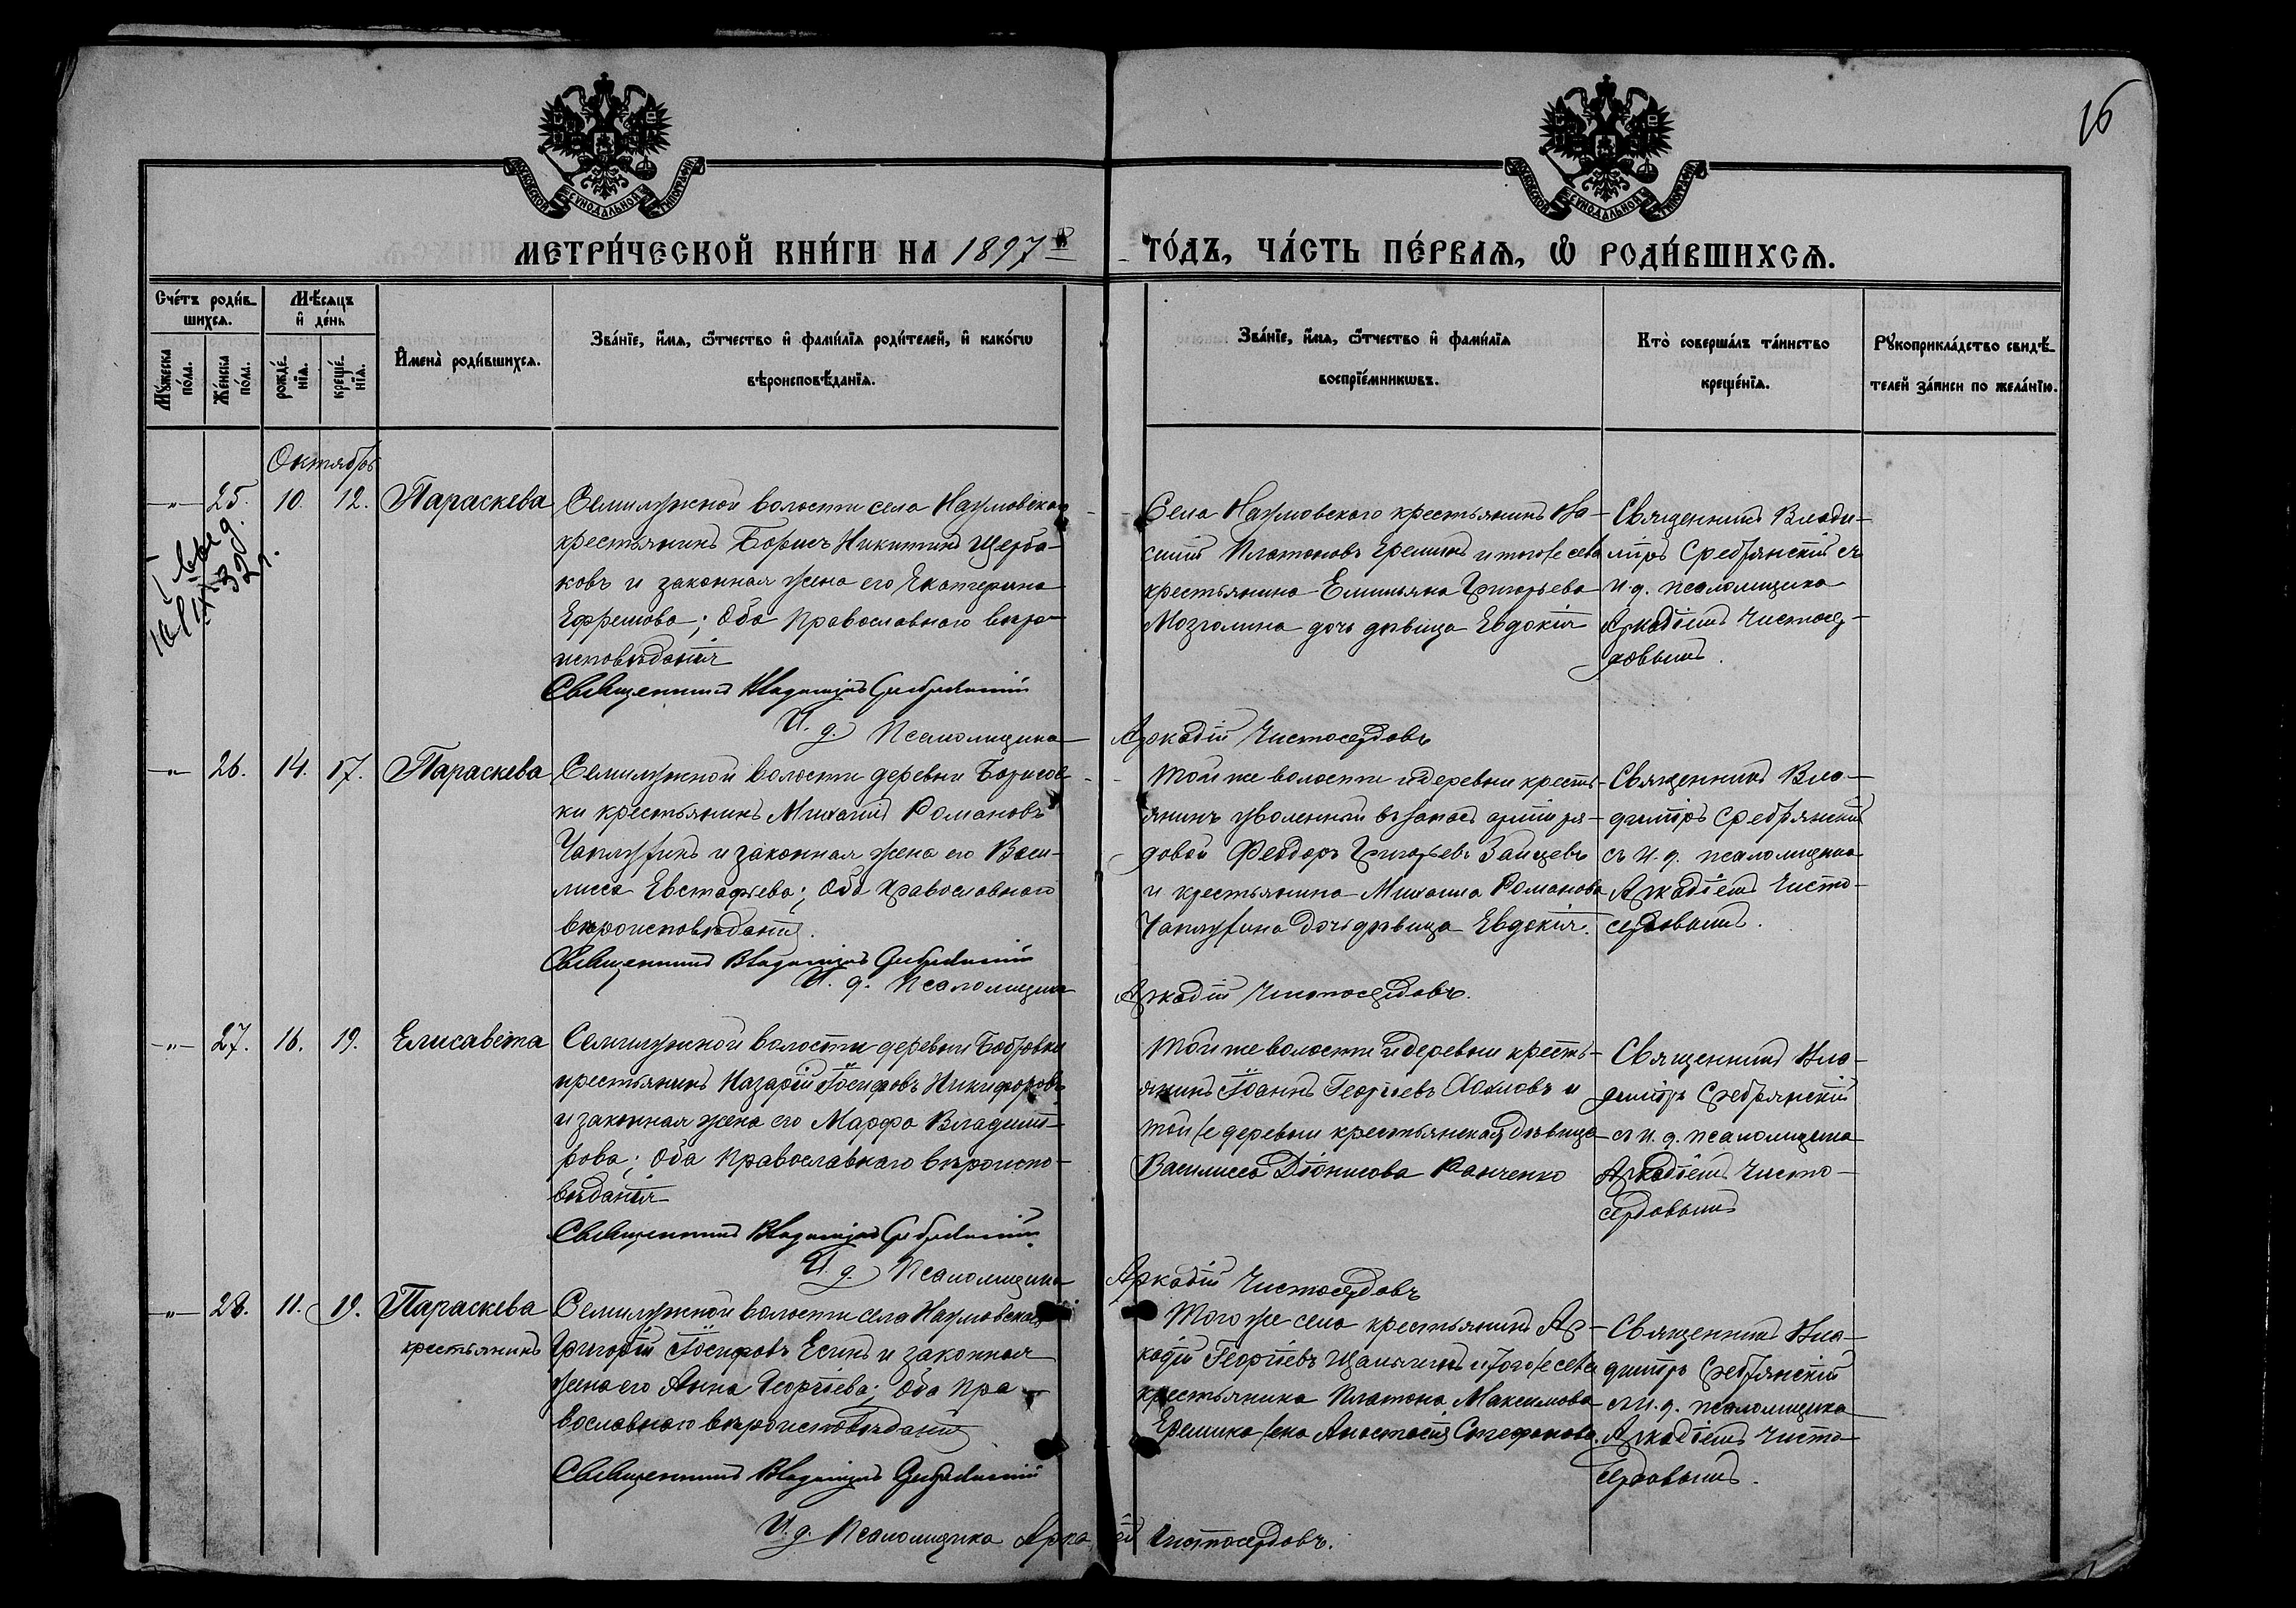 16
МОСКОВСКОЙ СѴНОДАЛЬНОЙ ТИПОГРАФІИ
МОСКОВСКОЙ СѴНОДАЛЬНОЙ ТИПОГРАФІИ
МЕТРИ́ЧЕСКОЙ КНИ́ГИ НА 1897й ГО́ДЪ, ЧА́СТЬ ПЕ́РВАѦ, Ѽ РОДИ́ВШИХСѦ.
Сче́тъ роди́в-
шихсѧ.
Мѣ́сѧцъ
и҆ де́нь
Мꙋ́жеска
по́ла.
Же́нска
по́ла.
рожде́-
нїѧ.
креще́-
нїѧ.
И҆мена̀ роди́вшихсѧ.
Зва́нїе, и҆́мѧ, ѻ҆́тчество и҆ фами́лїѧ роди́телей, и҆ како́гѡ
вѣроисповѣ́данїѧ.
Зва́нїе, и҆́мѧ, ѻ҆́тчество и҆ фами́лїѧ
воспрїе́мникѡвъ.
Кто̀ соверша́лъ та́инство
креще́нїѧ.
Рꙋкоприкла́дство свидѣ́-
телей за́писи по жела́нїю.
Октябрь
-"- 25. 10. 12. Параскева
Семилужной волости села Наумовскаго
крестьянинъ Борисъ Никитинъ Щерба-
ковъ и законная жена его Екатерина
Ефремова; Оба Православнаго веро-
исповѣданія
Священникъ Владиміръ Сребрянскій
И. д. Псаломщика Аркадій Чистосердовъ
Села Наумовскаго крестьянинъ Ва-
силій Платоновъ Ереминъ и того же села
крестьянина Емельяна Григорьева
Мозголина дочь дѣвица Евдокія
Священникъ Влади-
міръ Сребрянскій съ
и. д. псаломщика
Аркадіемъ Чистосер-
довымъ.
-"- 26. 14. 17. Параскева
Семилужной волости деревни Борисов-
ки крестьянинъ Михаилъ Романовъ
Чаплужинъ и законная жена его Васи-
лисса Евстафіева; Оба православнаго
вѣроисповѣданія.
Священникъ Владиміръ Сребрянскій
И. д. Псаломщика Аркадій Чистосердовъ.
Той же волости и деревни кресть-
янинъ уволенный въ запасъ арміи ря-
довой Феодоръ Григорьевъ Зайцевъ
и крестьянина Михаила Романова
Чаплужина дочь дѣвица Евдокія.
Священникъ Вла-
диміръ Сребрянскій
съ и. д. псаломщика
Аркадіемъ Чисто-
сердовымъ.
-"- 27. 16. 19. Елисавета
Семилужной волости деревни Бобровки
крестьянинъ Назарій Іосифовъ Никифоровъ
и законная жена его Марфа Владимі-
рова; Оба Православнаго вѣроиспо-
вѣданія
Священникъ Владиміръ Сребрянскій
И. д. Псаломщика Аркадій Чистосердовъ
Той же волости и деревни кресть-
янинъ Іоаннъ Георгіевъ Хохловъ и
той же деревни крестьянская дѣвица
Василисса Діонисова Ранченко
Священникъ Вла-
диміръ Сребрянскій
съ и. д. псаломщика
Аркадіемъ Чисто-
сердовымъ
-"- 28. 11. 19. Параскева
крестьянинъ
Семилужной волости села Наумовскаго
Григорій Іосифовъ Есинъ и законная
жена его Анна Георгіева; Оба Пра-
вославнаго вѣроисповѣданія
Священникъ Владиміръ Сребрянскій
И. д. Псаломщика Аркадій Чистосердовъ.
Того же села крестьянинъ Ар-
кадій Георгіевъ и того же села
крестьянина Платона Максимова
Еремина жена Анастасія Стефанова.
Священникъ Вла-
диміръ Сребрянскій
съ и. д. псаломщика
Аркадіемъ Чисто-
сердовымъ.